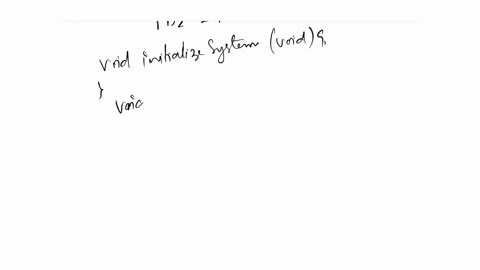 void initialize System (void) {
}
void